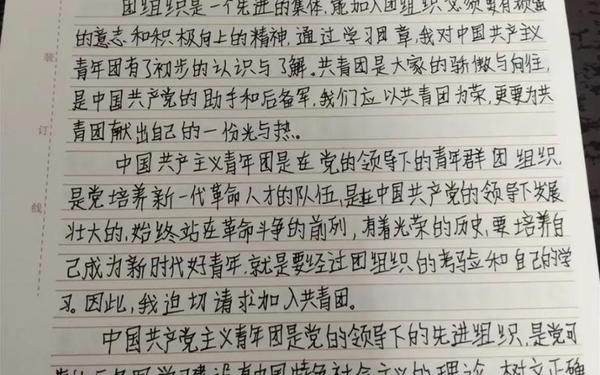 团组织是一个先进的集体,能加入团组织必须要有顽强
的意志和积极向上的精神,通过学习团章,我对中国共产主义
青年团有了初步的认识与了解。共青团是大家的骄傲与向往,
是中国共产党的助手和后备军,我们应以共青团为荣,更要为共
青团献出自己的一份光与热。
中国共产主义青年团是在党的领导下的青年群团组织,
是党培养新一代革命人才的队伍,是在中国共产党的领导下发展
壮大的,始终站在革命斗争的前列,有着光荣的历史,要培养自
己成为新时代好青年,就是要经过团组织的考验和自己的学
习。因此,我迫切请求加入共青团。
中国共产党主义青年团是党的领导下的先进组织,是党可
建设有中国特色社会主义的理论,树立正确
装
订
线